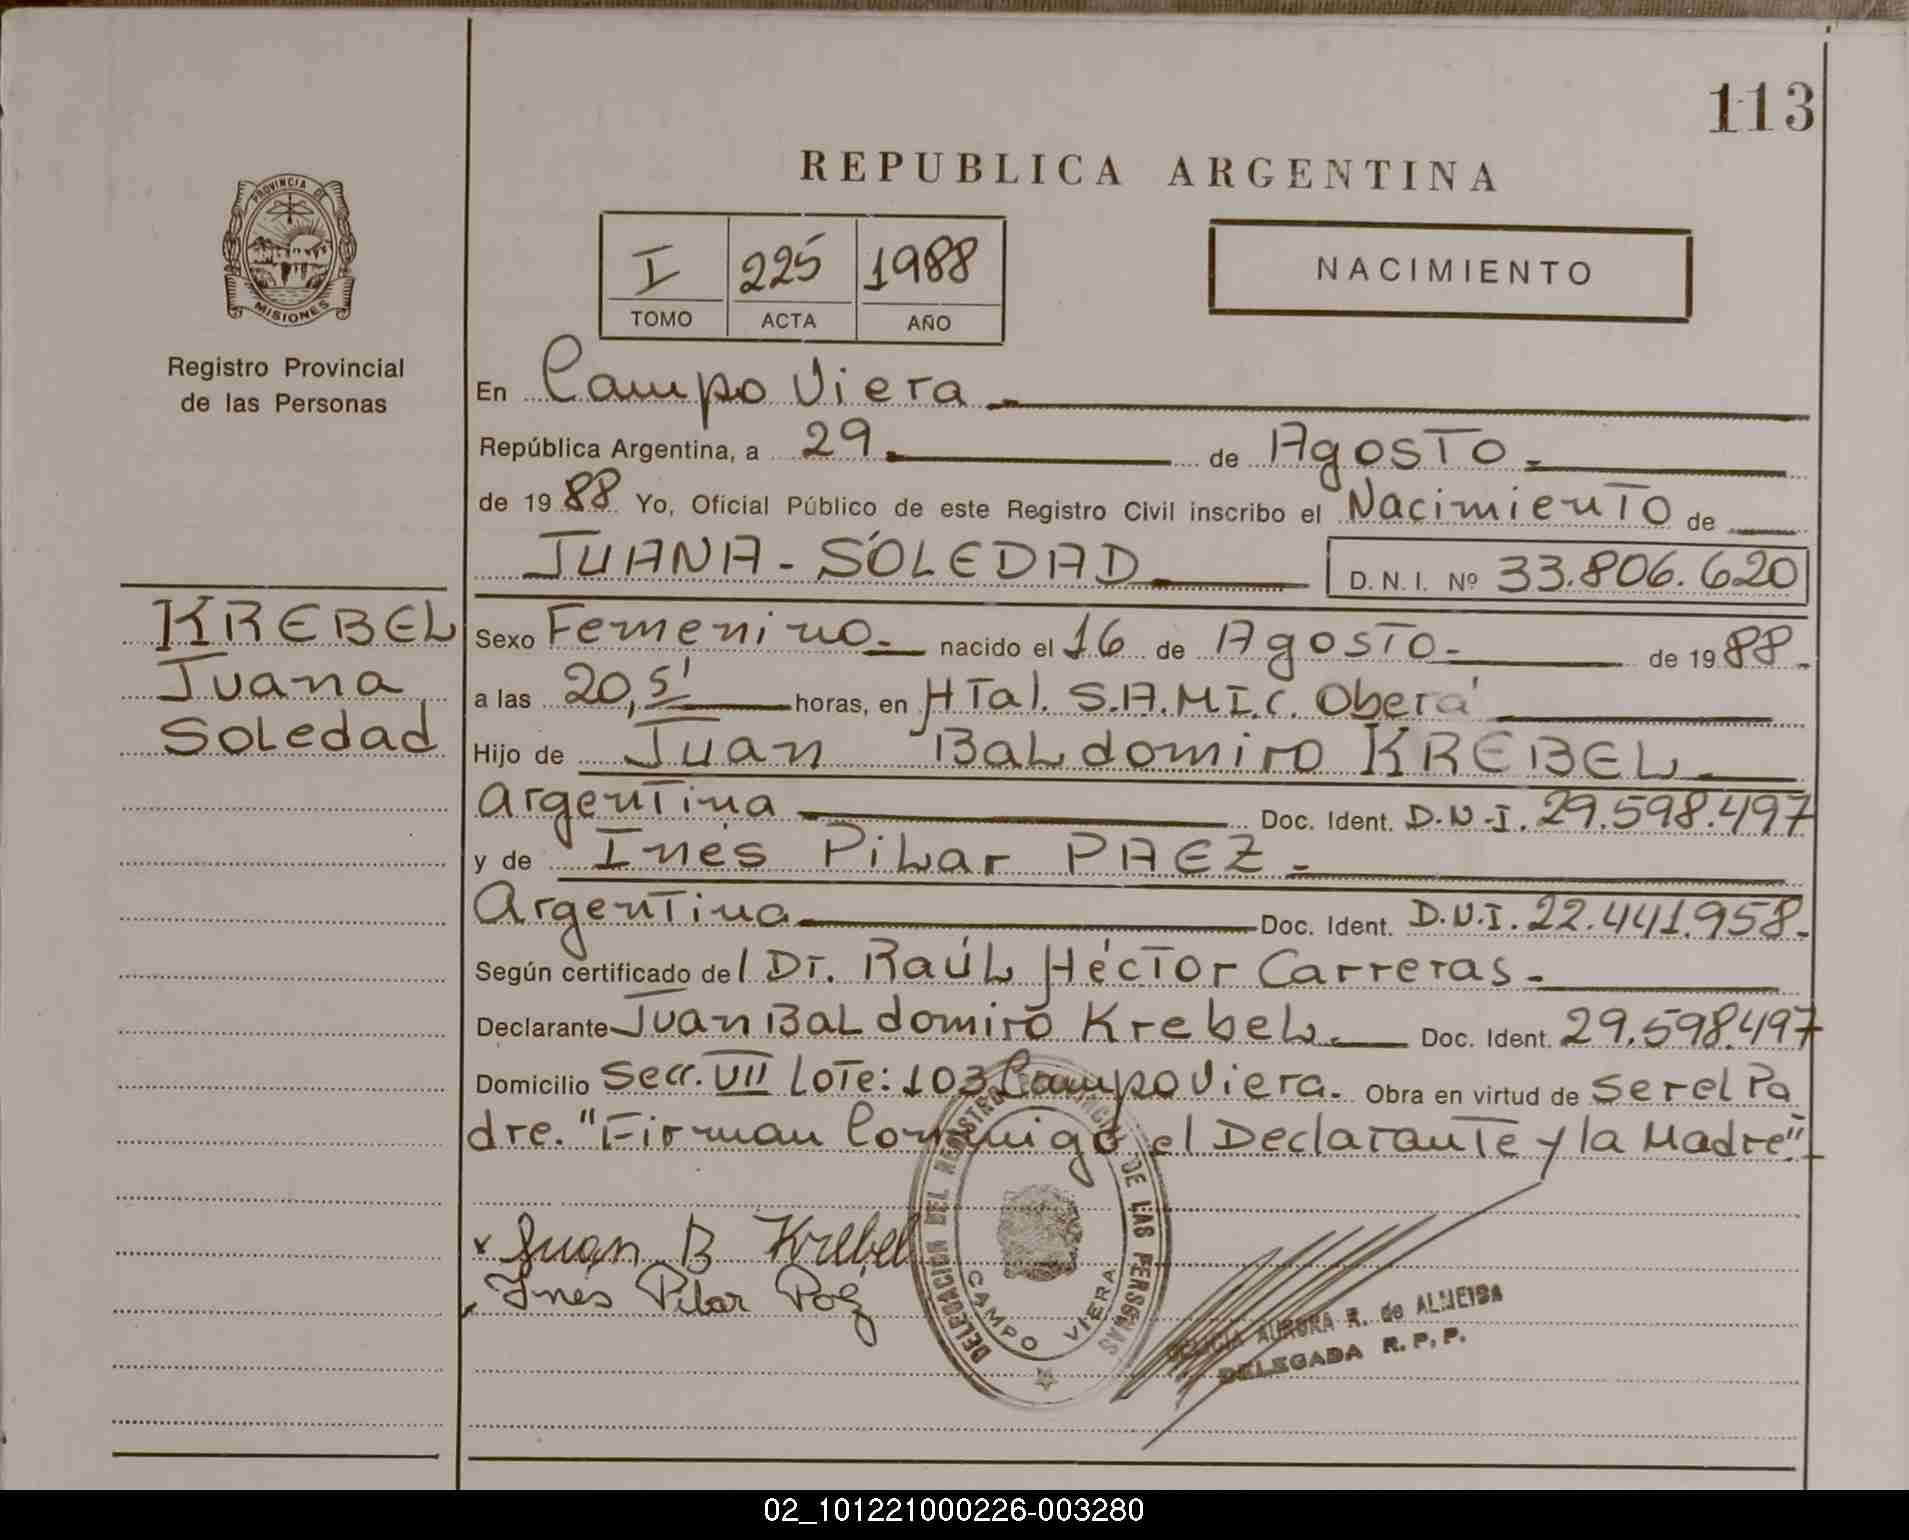 113
REPUBLICA ARGENTINA
PROVINCIA DE
MISIONES
Registro Provincial
de las Personas
I 225 1988
TOMO ACTA AÑO
NACIMIENTO
En Campo Viera
República Argentina, a 29 de Agosto
de 1988 Yo, Oficial Público de este Registro Civil inscribo el Nacimiento de
JUANA - SOLEDAD D. N. I. Nº 33.806.620
KREBEL
Juana
Soledad
Sexo Femenino nacido el 16 de Agosto de 1988
a las 20,5' horas, en HTal. S.A.M.I.C. Oberá
Hijo de Juan Baldomiro KREBEL
Argentina Doc. Ident. D.N.I. 29.598.497
y de Inés Pilar PAEZ
Argentina Doc. Ident. D.N.I. 22.441.958
Según certificado del Dr. Raúl Héctor Carreras
Declarante Juan Baldomiro Krebel Doc. Ident. 29.598.497
Domicilio Secc. VII Lote: 103 Campo Viera. Obra en virtud de Ser el Pa
dre. "Firman Conmigo el Declarante y la Madre"
Juan B Krebel
Inés Pilar Poez
DELEGACION DEL REGISTRO PROVINCIAL DE LAS PERSONAS
CAMPO VIERA
AURORA R. de ALMEIDA
DELEGADA R. P. P.
02_101221000226-003280